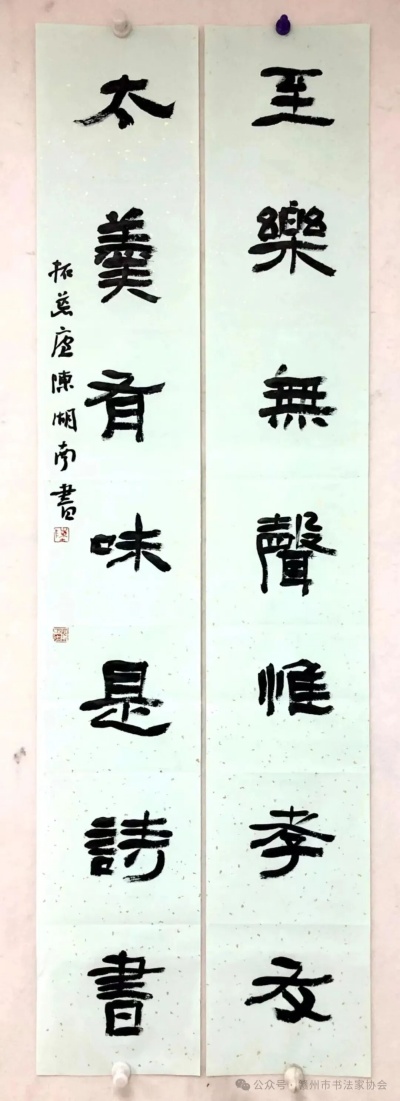 至樂無聲惟孝友
太羹有味是詩書
陳湖南書
公众号 州市书法家协会